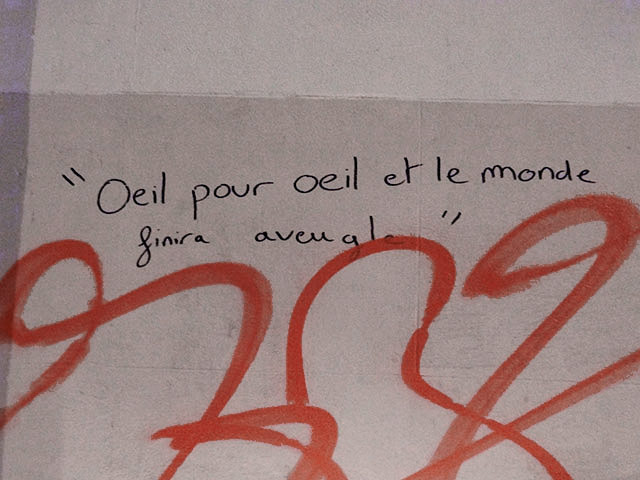 " Oeil pour oeil et le monde
finira aveugle "